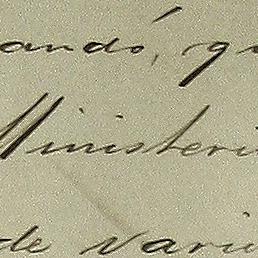 andó, qu
Ministeri
de vari